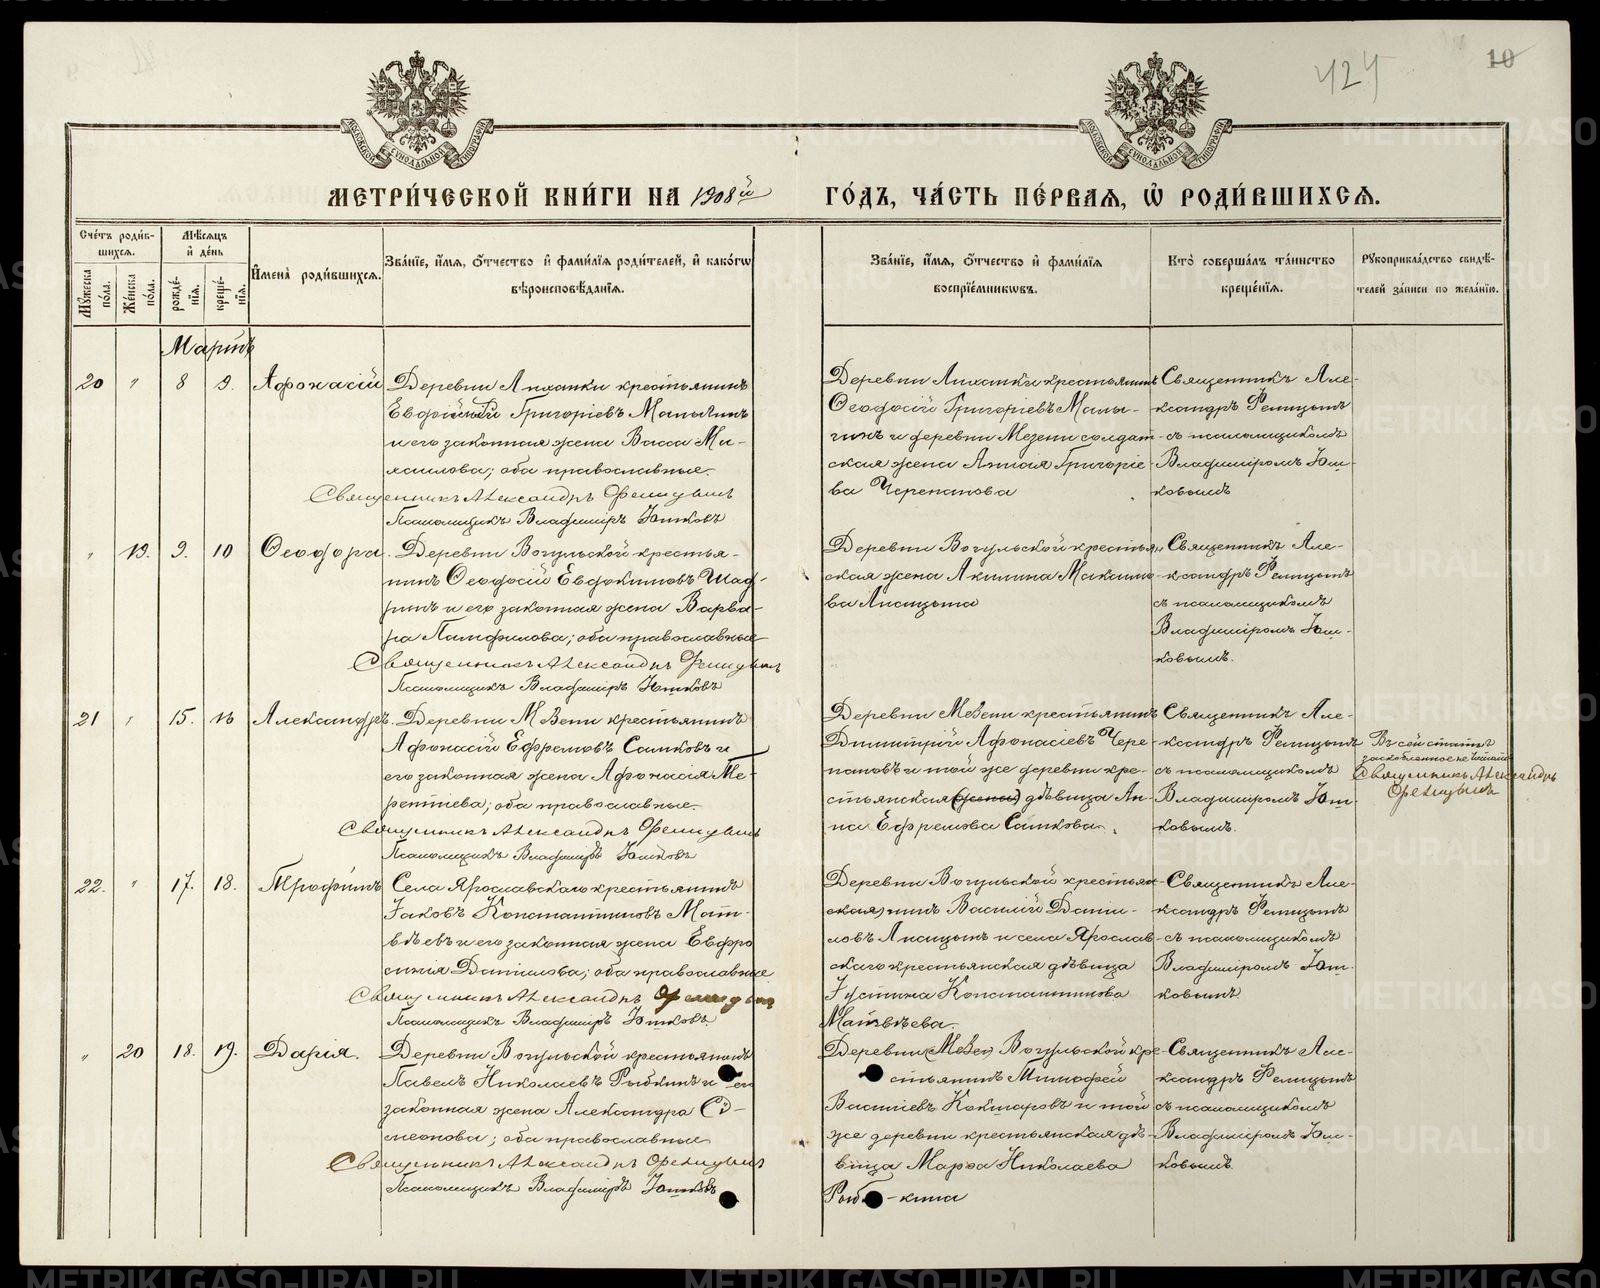 424
10
МОСКОВСКОЙ СѴНОДАЛЬНОЙ ТИПОГРАФІИ
МОСКОВСКОЙ СѴНОДАЛЬНОЙ ТИПОГРАФІИ
МЕТРИ́ЧЕСКОЙ КНИ́ГИ НА 1908й ГО́ДЪ, ЧА́СТЬ ПЕ́РВАѦ, Ѡ҆ РОДИ́ВШИХСѦ.
Сче́тъ роди́в-
шихсѧ.
Мѣ́сѧцъ
и҆ де́нь
Мꙋ́жеска по́ла.
Же́нска по́ла.
рожде́-нїѧ.
креще́-нїѧ.
И҆мена̀ роди́вшихсѧ.
Зва́нїе, и҆́мѧ, ѻ҆́тчество и҆ фами́лїѧ роди́телей, и҆ како́гѡ
вѣроисповѣ́данїѧ.
Зва́нїе, и҆́мѧ, ѻ҆́тчество и҆ фами́лїѧ
воспрїе́мникѡвъ.
Кто̀ соверша́лъ та́инство
креще́нїѧ.
Рꙋкоприкла́дство свидѣ́-
телей за́писи по жела́нїю.
Мартъ
20 " 8 9. Афонасій
Деревни Лиханки крестьянинъ
Григоріевъ
и его законная жена Васса Ми-
хаилова; оба православные.
Священникъ Александръ Ѳелицынъ
Псаломщикъ Владиміръ Юшковъ
Деревни Лиханки крестьянинъ
Ѳеодосій Григоріевъ Малы-
гинъ и деревни Мезени солдат-
ская жена Григорie-
ва Черепанова
Священникъ Але-
ксандръ Ѳелицынъ
съ псаломщикомъ
Владиміромъ Юш-
ковымъ
" 19. 9. 10 Ѳеодора.
Деревни Вогульской крестья-
нинъ Ѳеодосій Евдокимовъ Шад-
ринъ и его законная жена Варва-
ра Памфилова; оба православные
Священникъ Александръ Ѳелицынъ
Псаломщикъ Владиміръ Юшковъ
Деревни Вогульской крестьян-
ская жена Акилина Максимо-
ва Лисицына
Священникъ Але-
ксандръ Ѳелицынъ
съ псаломщикомъ
Владиміромъ Юш-
ковымъ.
21 " 15. 16 Александръ.
Деревни Мезени крестьянинъ
Афонасій Ефремовъ Сашковъ и
его законная жена Афонасія Те-
рентіева; оба православные.
Священникъ Александръ Ѳелицынъ
Псаломщикъ Владиміръ Юшковъ
Деревни Мезени крестьянинъ
Димитрій Афонасіевъ Чере-
пановъ и той же деревни кре-
стьянская (жена) дѣвица Ан-
на Ефремова Сашкова.
Священникъ Але-
ксандръ Ѳелицынъ
съ псаломщикомъ
Владиміромъ Юш-
ковымъ.
Въ сей статьѣ
заскобленное не читать
Священникъ Александръ
Ѳелицынъ
22. " 17. 18. Трофимъ
Села Ярославскаго крестьянинъ
Іаковъ Константиновъ Мат-
вѣевъ и его законная жена Евфро
синія Данилова; оба православные
Священникъ Александръ Ѳелицынъ
Псаломщикъ Владиміръ Юшковъ.
Деревни Вогульской крестьян-
(ская) нинъ Василій Дани-
ловъ Лисицынъ и села Ярослав-
скаго крестьянская дѣвица
Іустина Константинова
Матвѣева.
Священникъ Але-
ксандръ Ѳелицынъ
съ псаломщикомъ
Владиміромъ Юш-
ковымъ
" 20 18. 19. Дарія.
Деревни Вогульской крестьянинъ
Павелъ Николаевъ Рыбкинъ и его
законная жена Александра Сѵ-
меонова; оба православные
Священникъ Александръ Ѳелицынъ
Псаломщикъ Владиміръ Юшковъ
Деревни (Мезен) Вогульской кре-
стьянинъ Тимофей
Васильевъ Кокшаровъ и той
же деревни крестьянская дѣ-
вица Марѳа Николаева
Рыб-кина
Священникъ Але-
ксандръ Ѳелицынъ
съ псаломщикомъ
Владиміромъ Юш-
ковымъ
METRIKI.GASO-URAL.RU